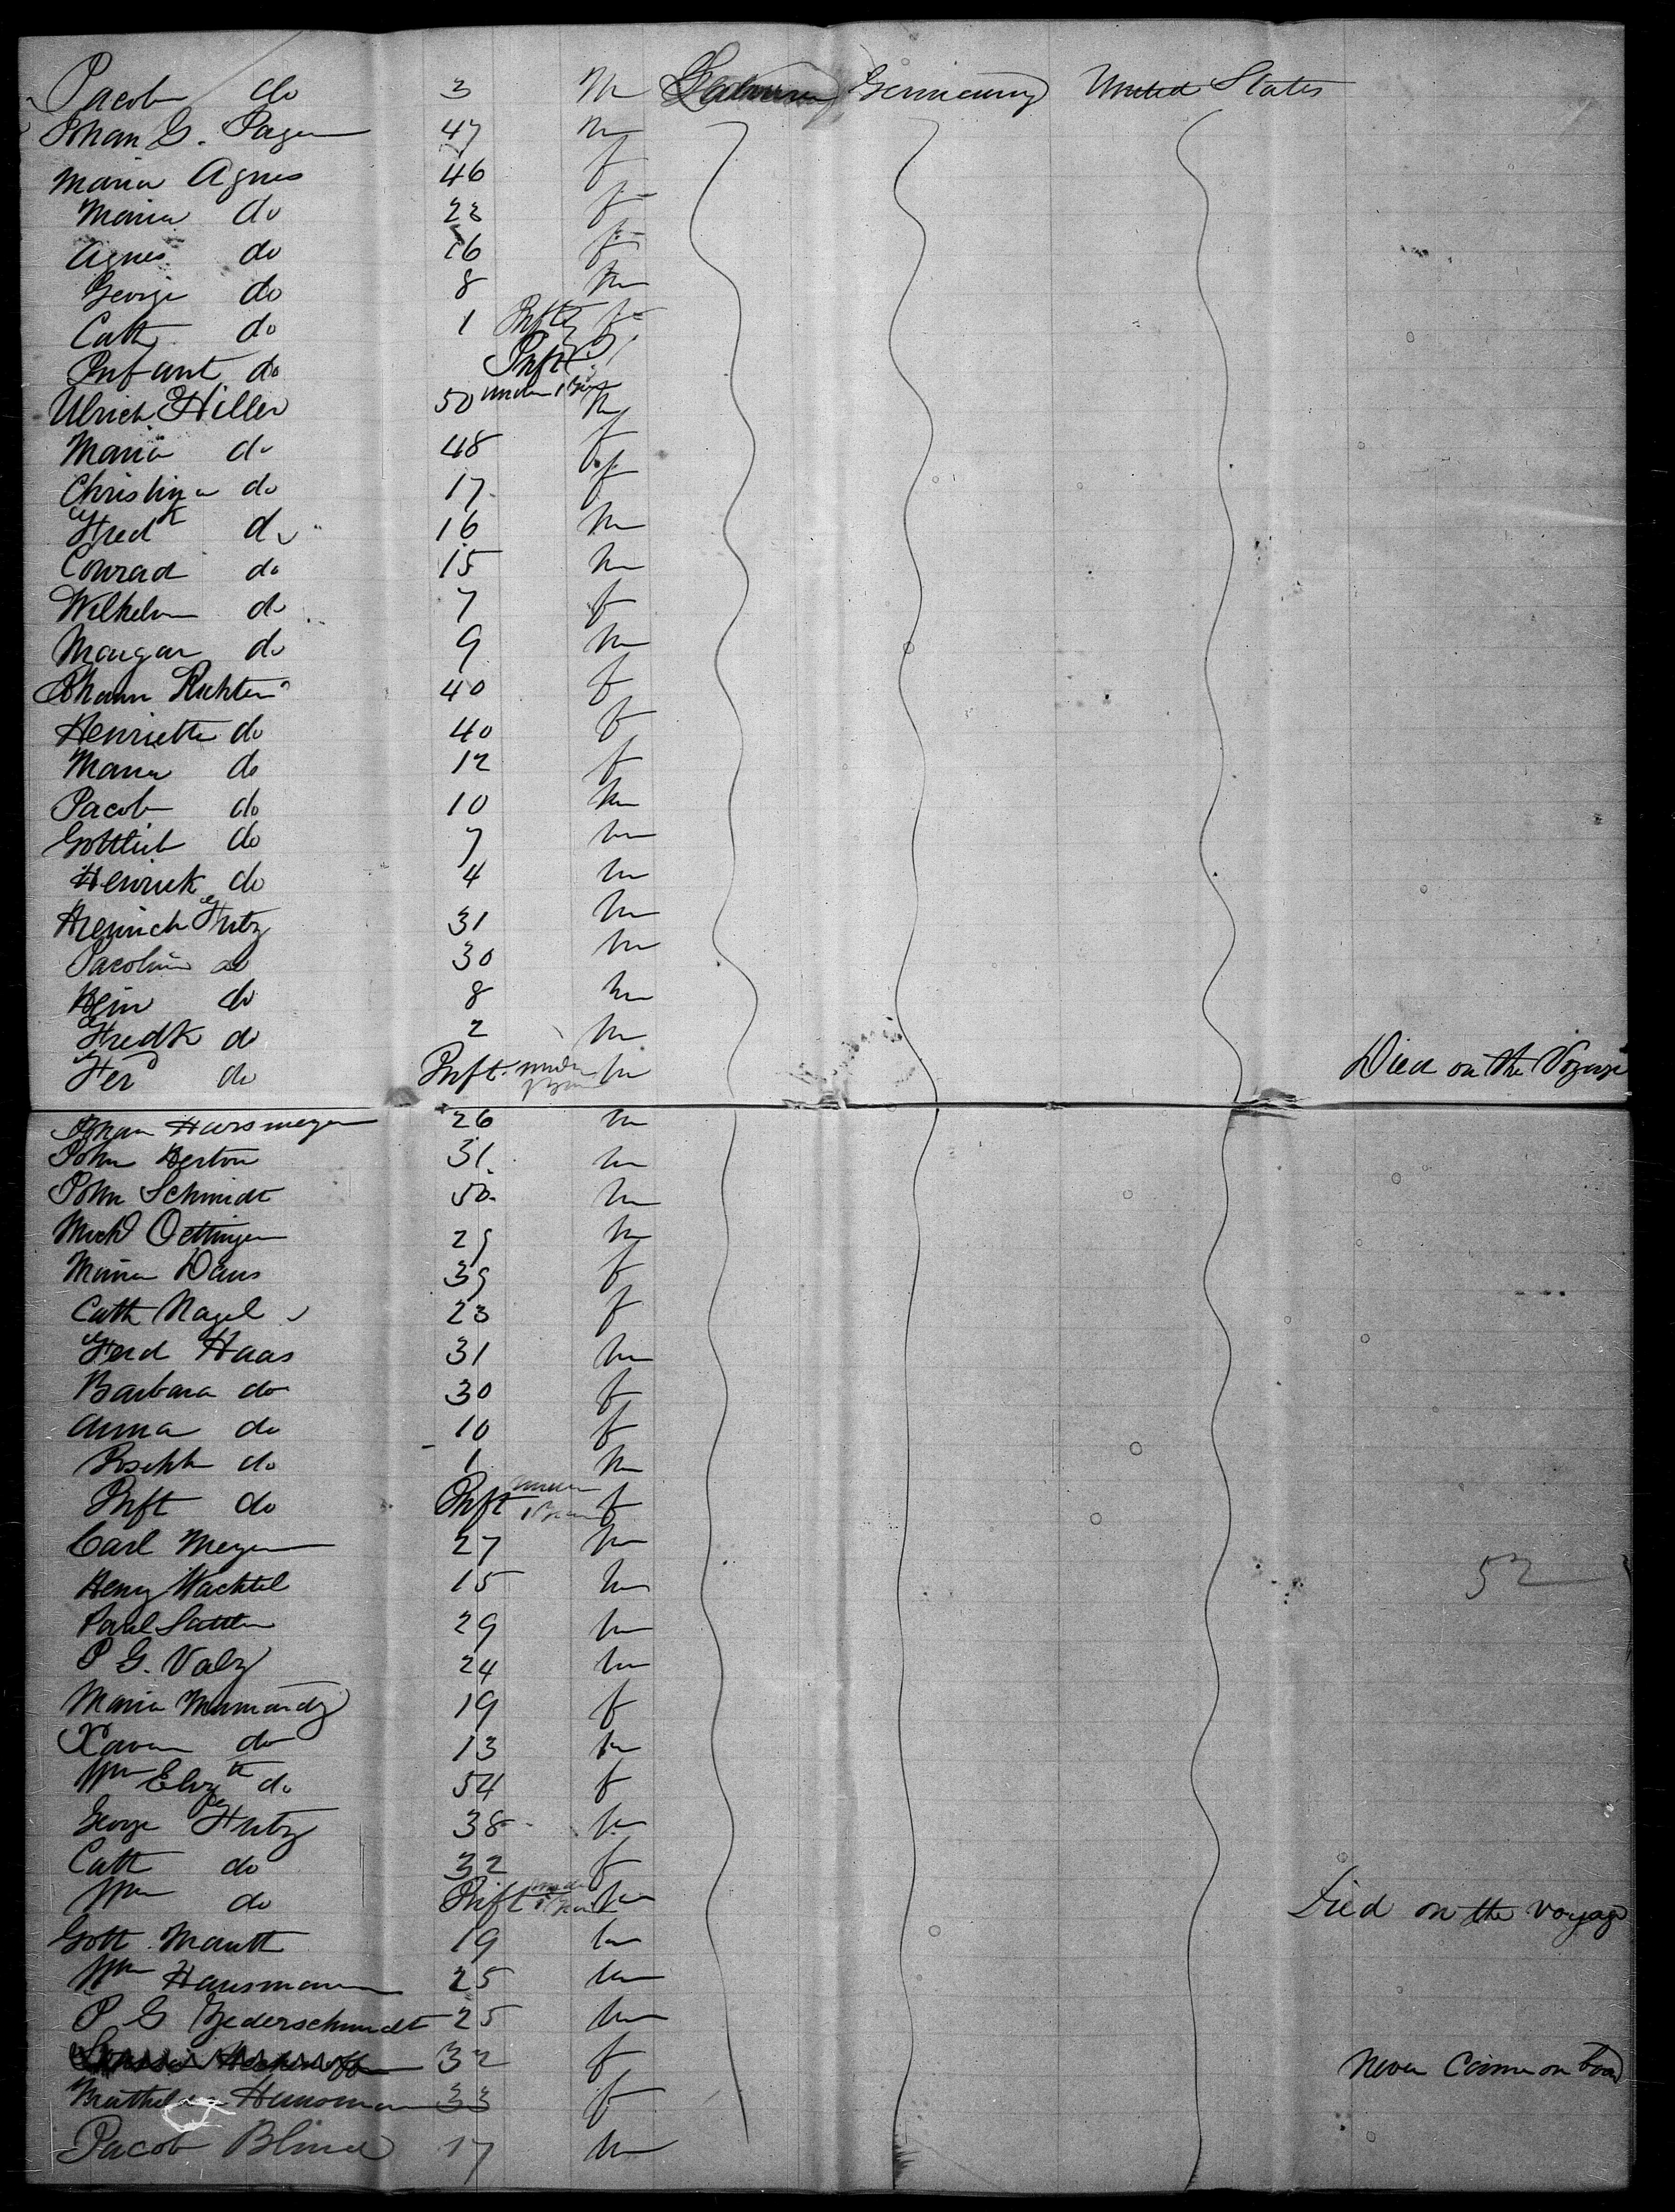 Jacob do 3 m Germany United States
Johan G. 47 m
Maria Agnes 46 f
Maria do 23 f
Agnes do 16 f
George do 8 m
Cath do 1 Inft f
Infant do Inft under 1 Year
Ulrich Hiller 50 m
Maria do 48 f
Christina do 17 f
Fredk do 16 m
Conrad do 15 m
Wilhelm do 7 f
Margar do 9 m
Johann Richter 40 f
Henriette do 40 f
Maria do 12 f
Jacob do 10 m
Gottlieb do 7 m
Henrick do 4 m
Heinrich Fritz 31 m
Jacobine do 30 m
Hein do 8 m
Fredk do 2 m
Ferd do Inft under 1 Year m Died on the Voyage
Johan Harsmeyer 26 m
John Herton 31 m
John Schmidt 50 m
Michl Oettinger 29 m
Maria Daus 39 f
Cath Nagel 23 f
Ferd Haas 31 m
Barbara do 30 f
Anna do 10 f
Joseph do 1 m
Inft do Inft under 1 Year f
Carl Meyer 27 m
Henry Wachtel 15 m 52
Paul Satter 29 m
P G. Valz 24 m
Maria 19 f
Xaver do 13 m
Wm Elizth do 54 f
George Fritz 38 m
Cath do 32 f
Wm do Inft under 1 Year m Died on the voyage
Gott Mauth 19 m
Wm Hausmann 25 m
P G Biederschmidt 25 m
32 f Never Came on board
33 f
Jacob Blind 17 m